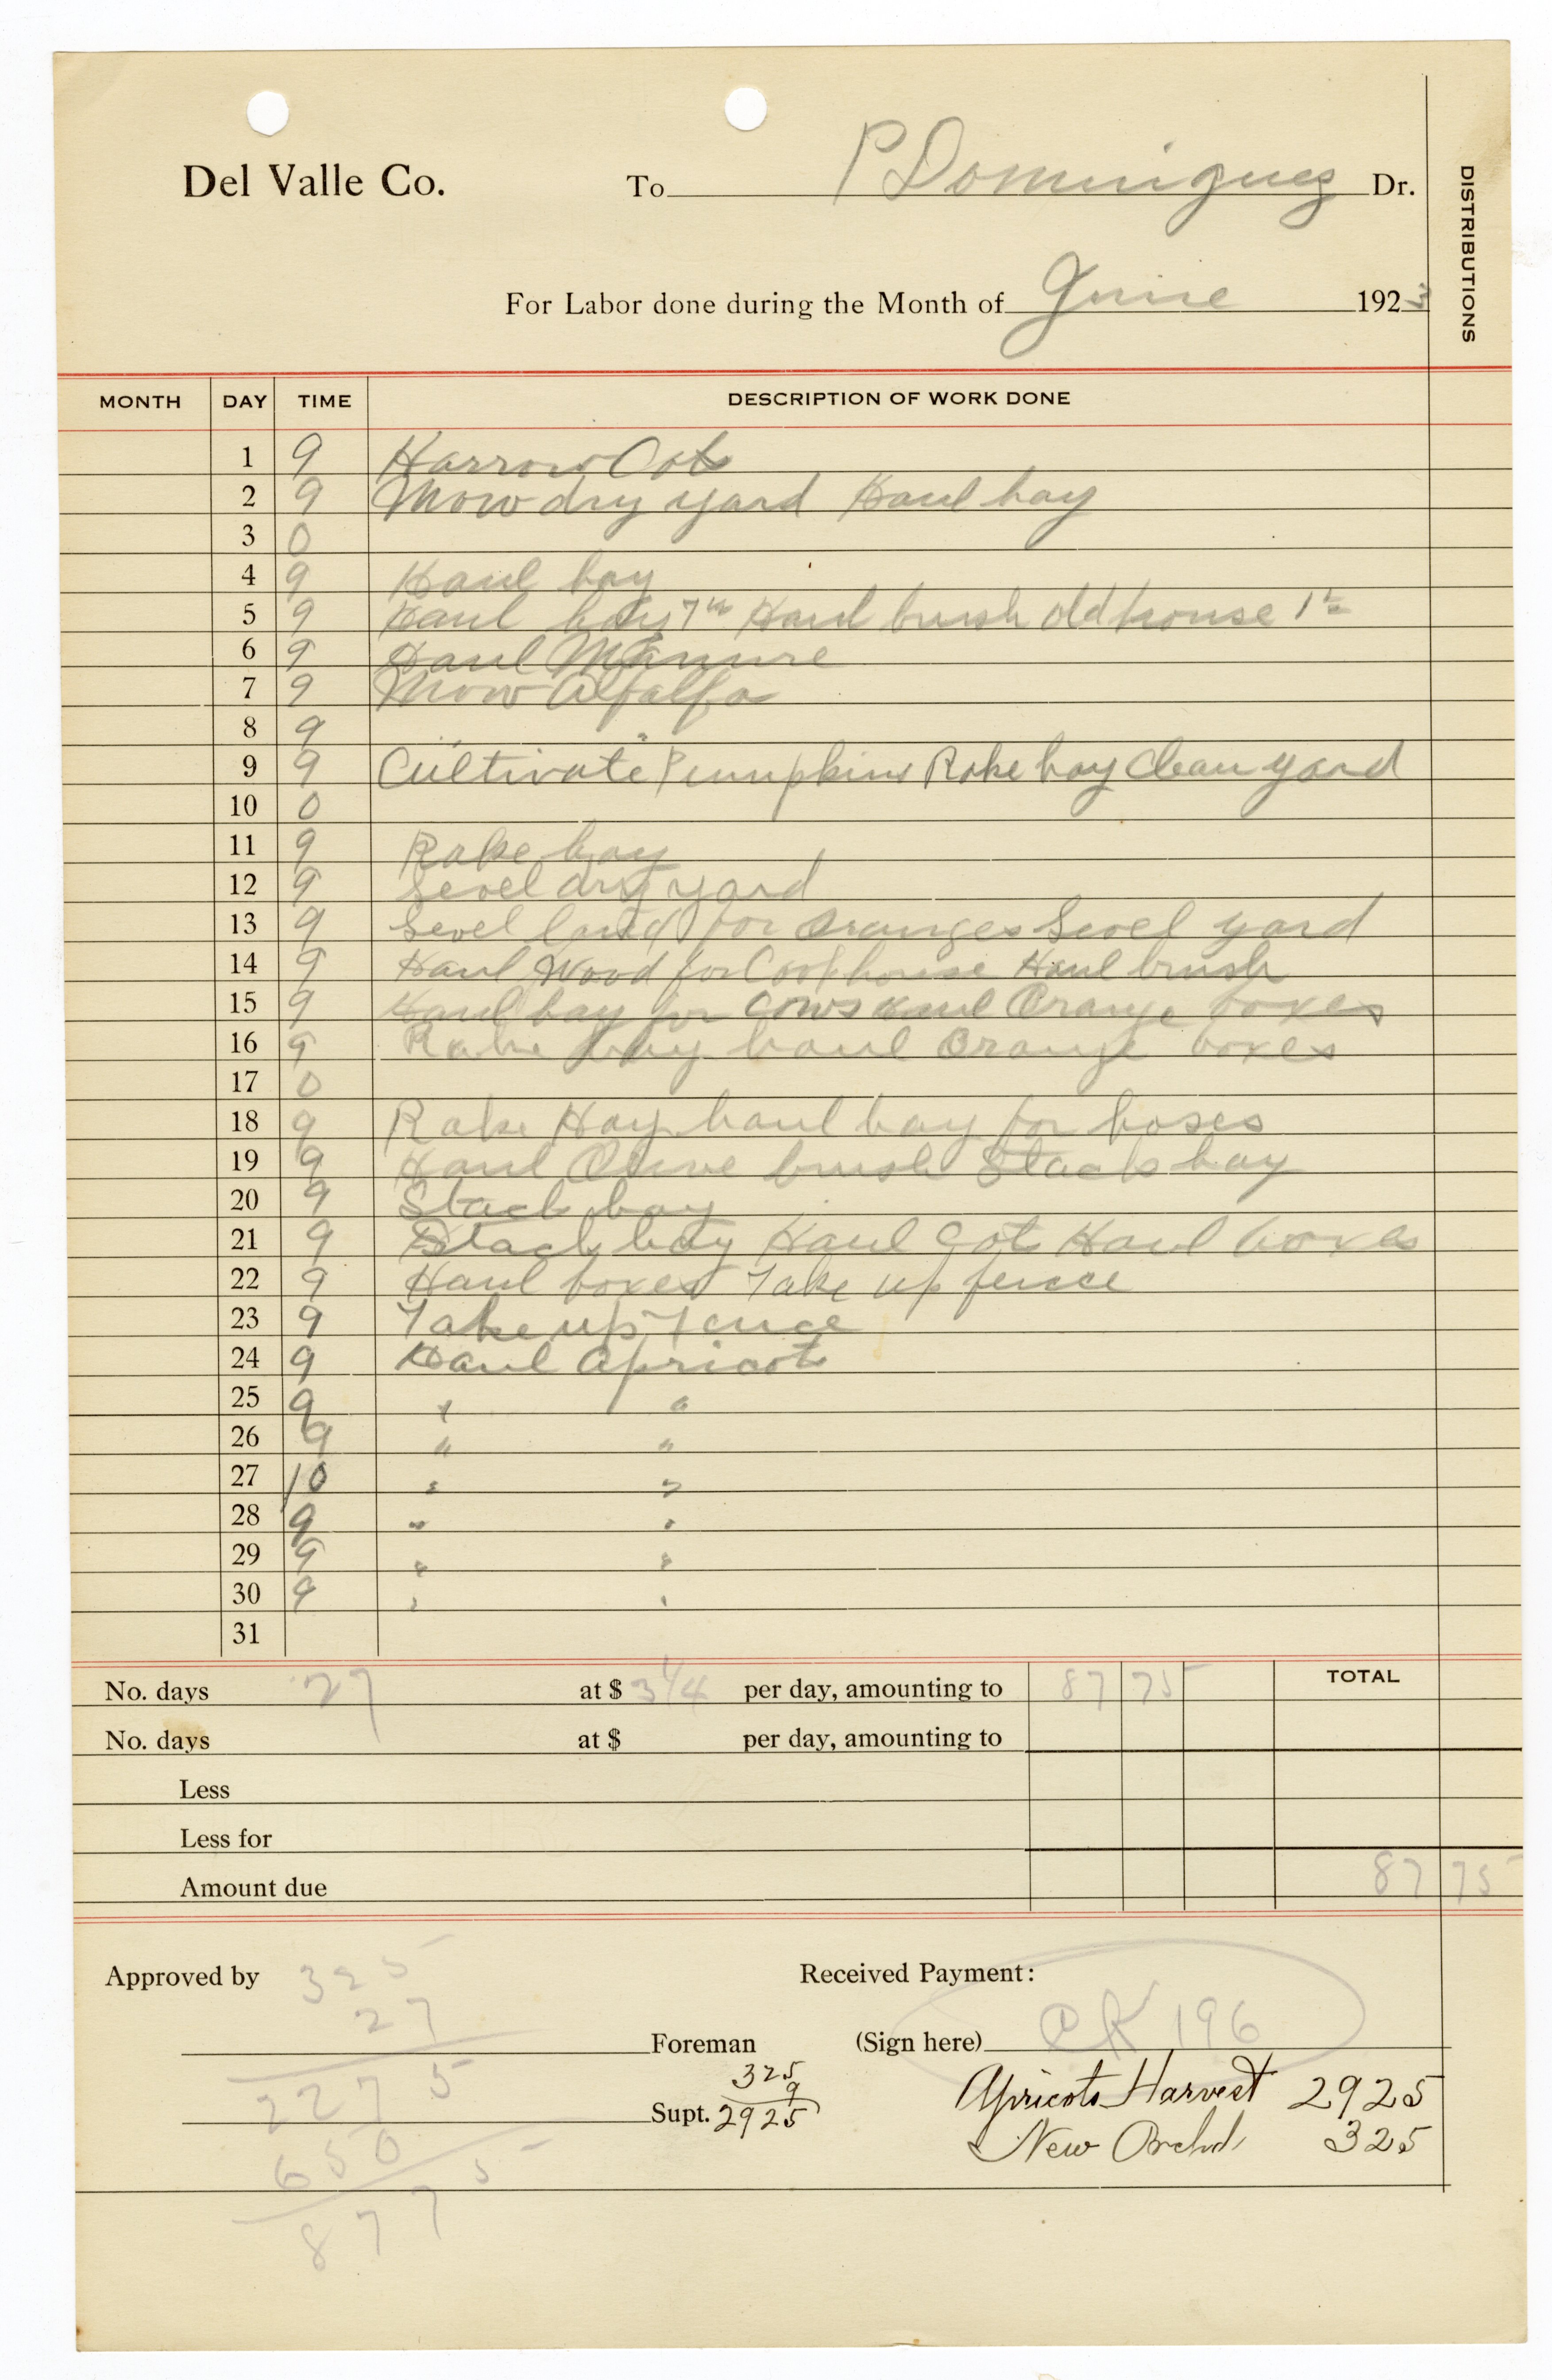 Del Valle Co. To P Dominguez Dr.
DISTRIBUTIONS
For Labor done during the Month of June 1923
MONTH DAY TIME DESCRIPTION OF WORK DONE
1 9 Harrow Cots
2 9 Mow dry yard Haul hay
3 0
4 9 Haul hay
5 9 Haul hay 7 Haul brush old house 1
6 9 Haul Manure
7 9 Mow Alfalfa
8 9 " "
9 9 Cultivate Pumpkins Rake hay Clean yard
10 0
11 9 Rake hay
12 9 Level dry yard
13 9 Level land for Oranges Level yard
14 9 Haul Wood for Cook house Haul brush
15 9 Haul hay for cows Haul Orange boxes
16 9 Rake hay haul Orange boxes
17 0
18 9 Rake Hay haul hay for hoses
19 9 Haul Olive brush Stack hay
20 9 Stack hay
21 9 Stack hay Haul Cots Haul boxes
22 9 Haul boxes Take up fence
23 9 Take up fence
24 9 Haul Apricots
25 9 " "
26 9 " "
27 10 " "
28 9 " "
29 9 " "
30 9 " "
31
No. days 27 at $ 3 1/4 per day, amounting to 87 75 TOTAL
No. days at $ per day, amounting to
Less
Less for
Amount due 87 75
Approved by 325 Received Payment:
27
Foreman (Sign here) CK 196
2275
325
9
Supt. 2925
Apricots Harvest 2925
New Orchd 325
650
8775